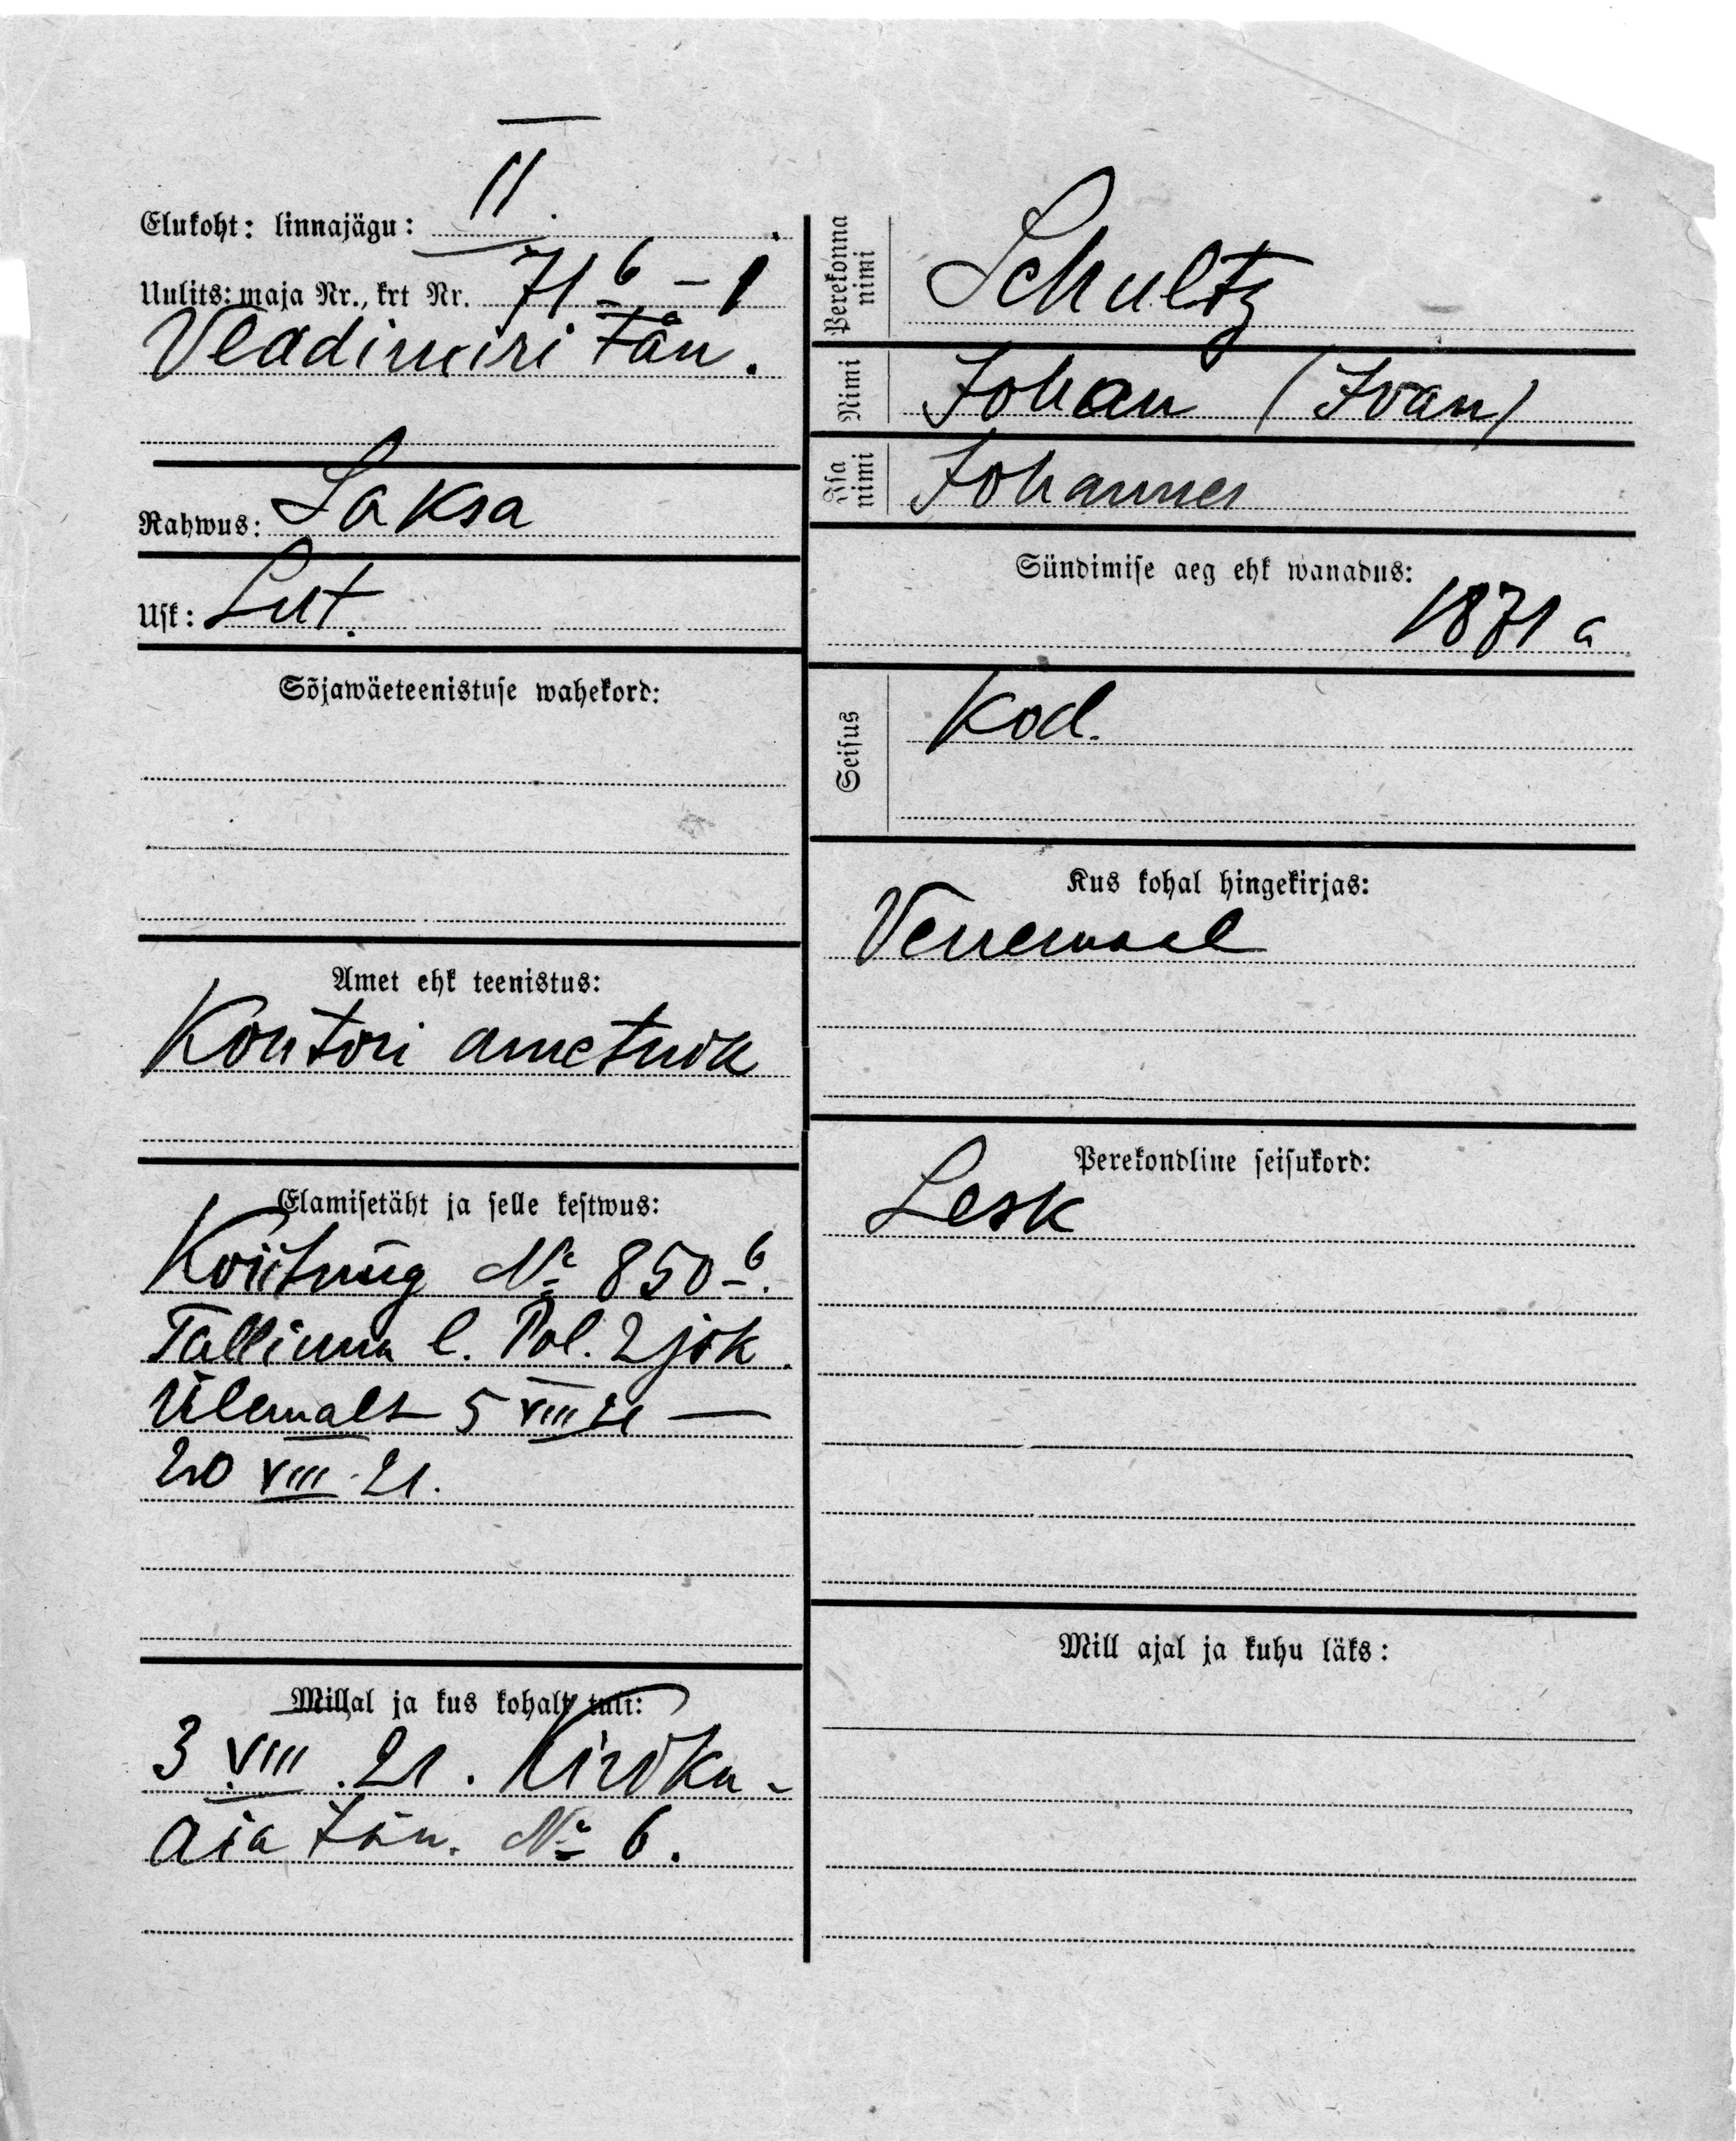 Elukoht: linnajägu: II.
Uulits: maja Nr., krt Nr. 71 б – 1
Vladimiri tän.
Rahwus: Saksa
Usk: Lut.
Sõjawäeteenistuse wahekord:
Amet ehk teenistus:
Kontori ametnik
Elamisetäht ja selle kestwus:
№ 850 б.
Tallinna l. Pol. 2 jsk.
Ülemalt 5 VIII 21 —
20 VIII 21.
Millal ja kus kohalt tuli:
3 VIII. 21. Kiriku-
aia tän. № 6.
Perekonna nimi Schultz
Nimi Johan (Ivan)
Isa nimi Johannes
Sündimise aeg ehk wanadus:
1871 a
Seisus Kod.
Kus kohal hingekirjas:
Venemaal
Perekondline seisukord:
Lesk
Mill ajal ja kuhu läks: